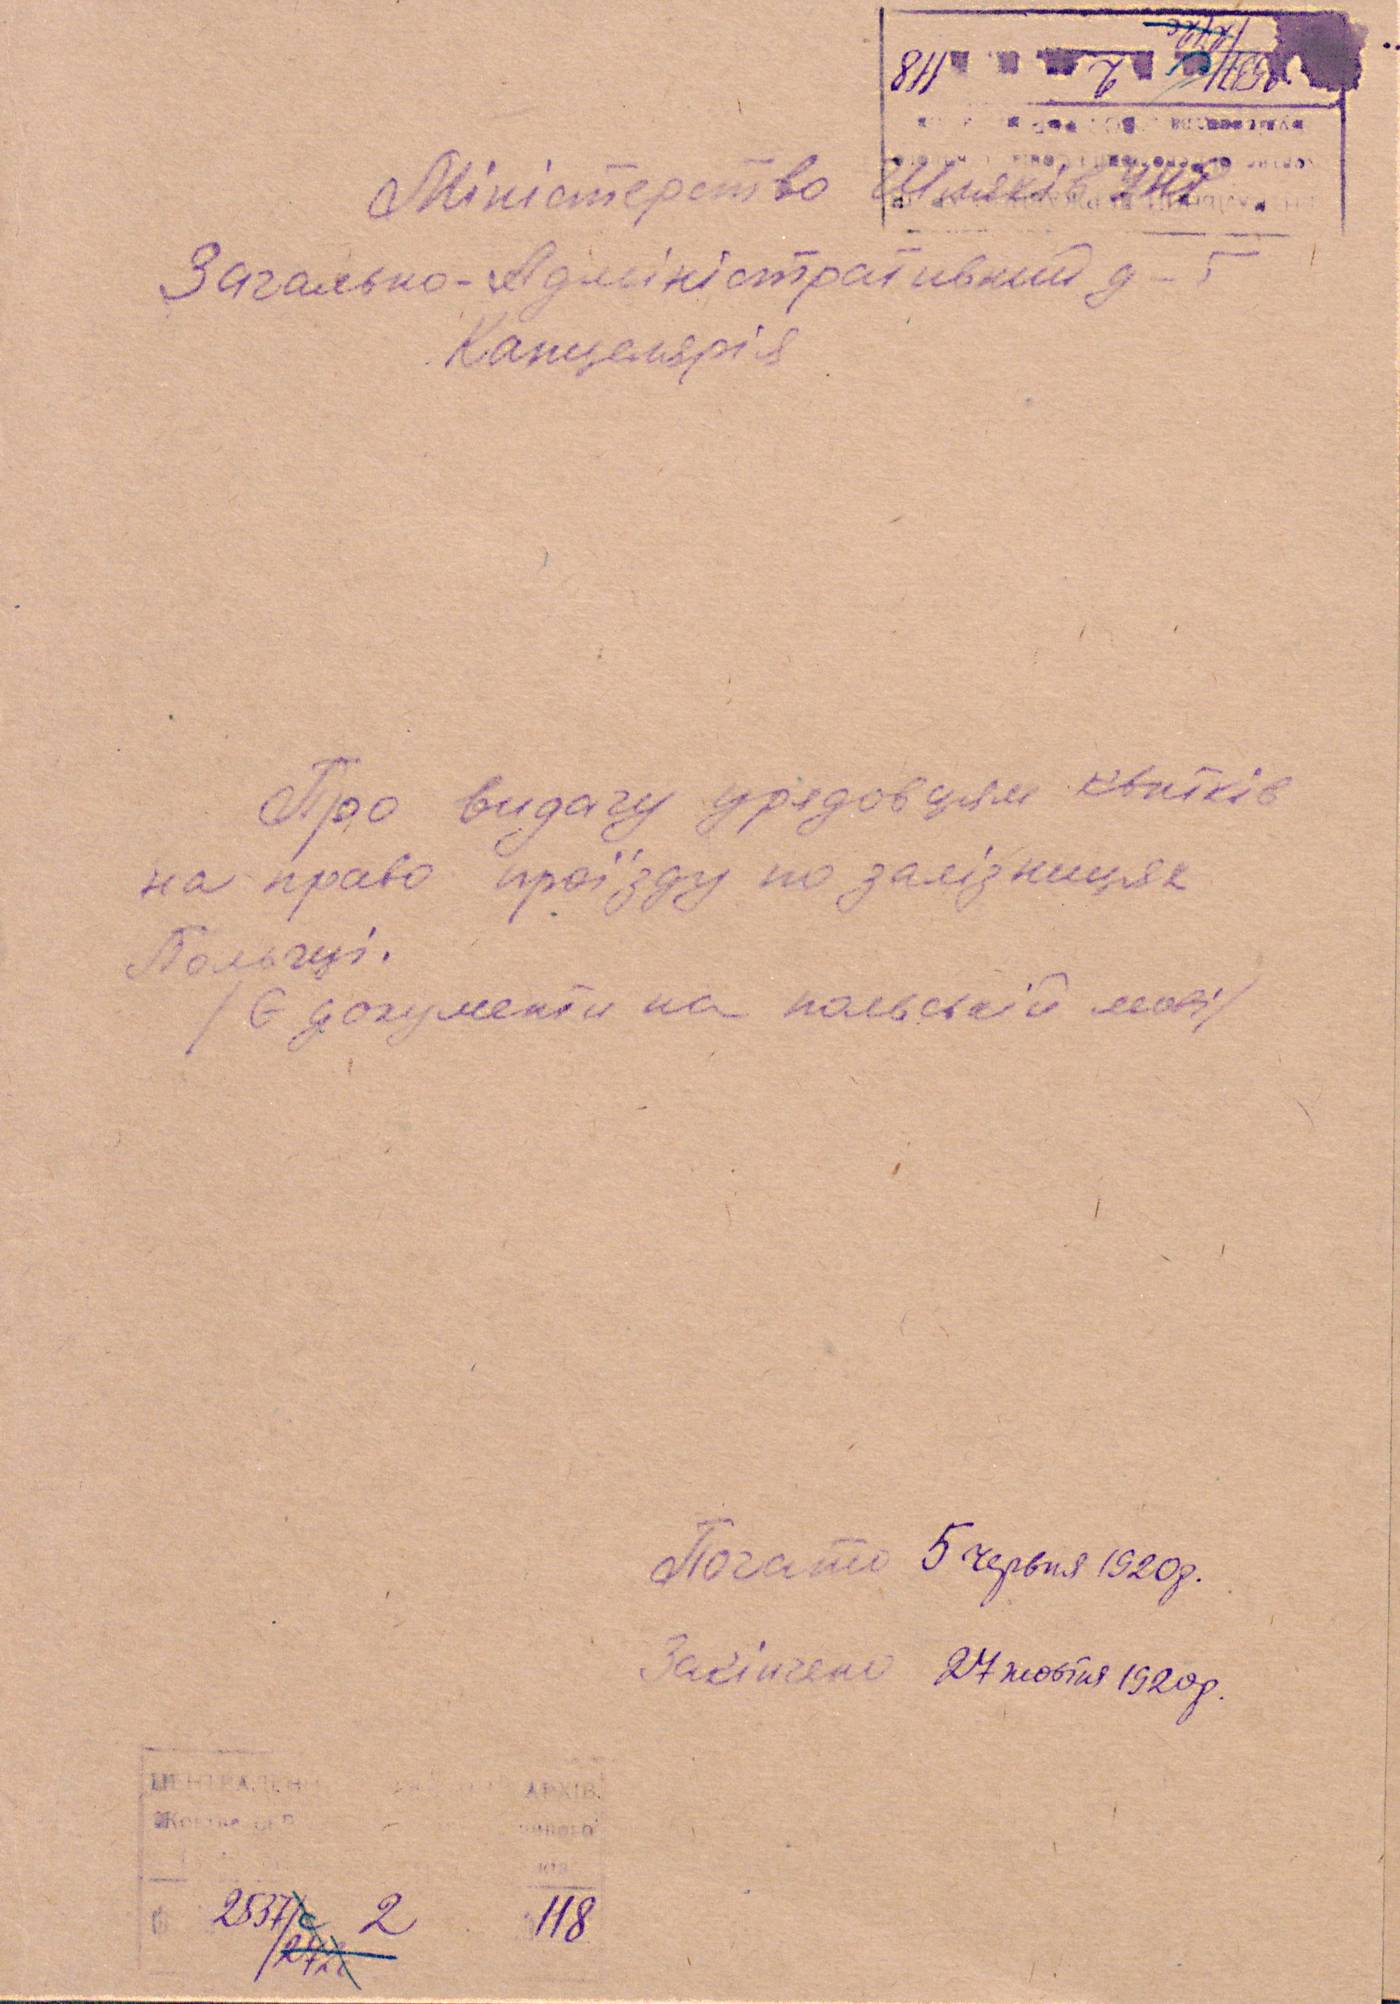 Міністерство Шляхів УНР
Загально-Адміністративний д-т
Канцелярія
Про видачу урядовцям квитків
на право проїзду по залізницях
Польщі.
/Є документи на польській мові/
Почато 5 червня 1920р.
Закінчено 27 жовтня 1920р.
ЦЕНТРАЛЬН АРХІВ
2537 2 118